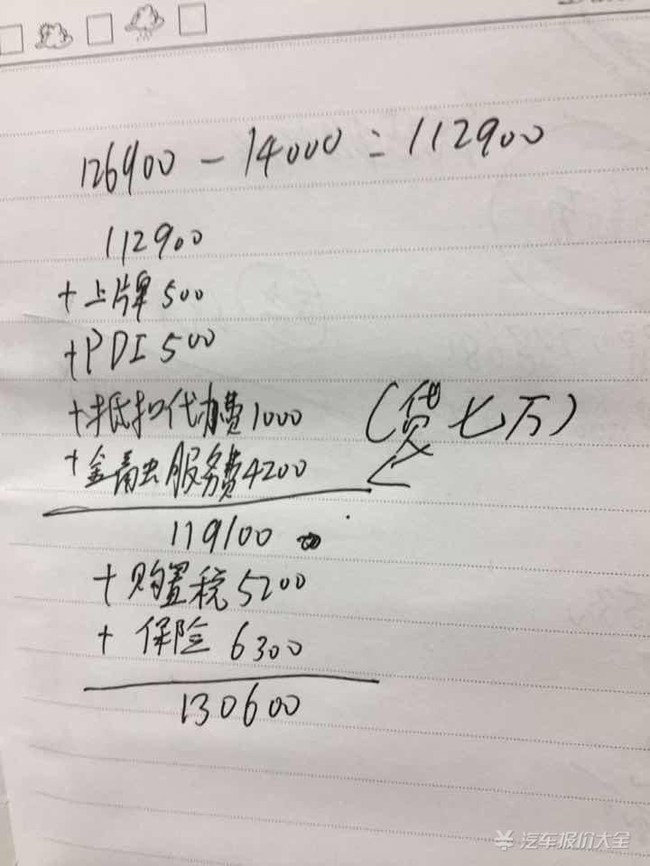 126900 - 14000 = 112900
112900
+上牌 500
+PDI 500
+抵扣代办费 1000
(贷七万)
+金融服务费 4200
119100
+购置税 5200
+ 保险 6300
130600
汽车报价大全